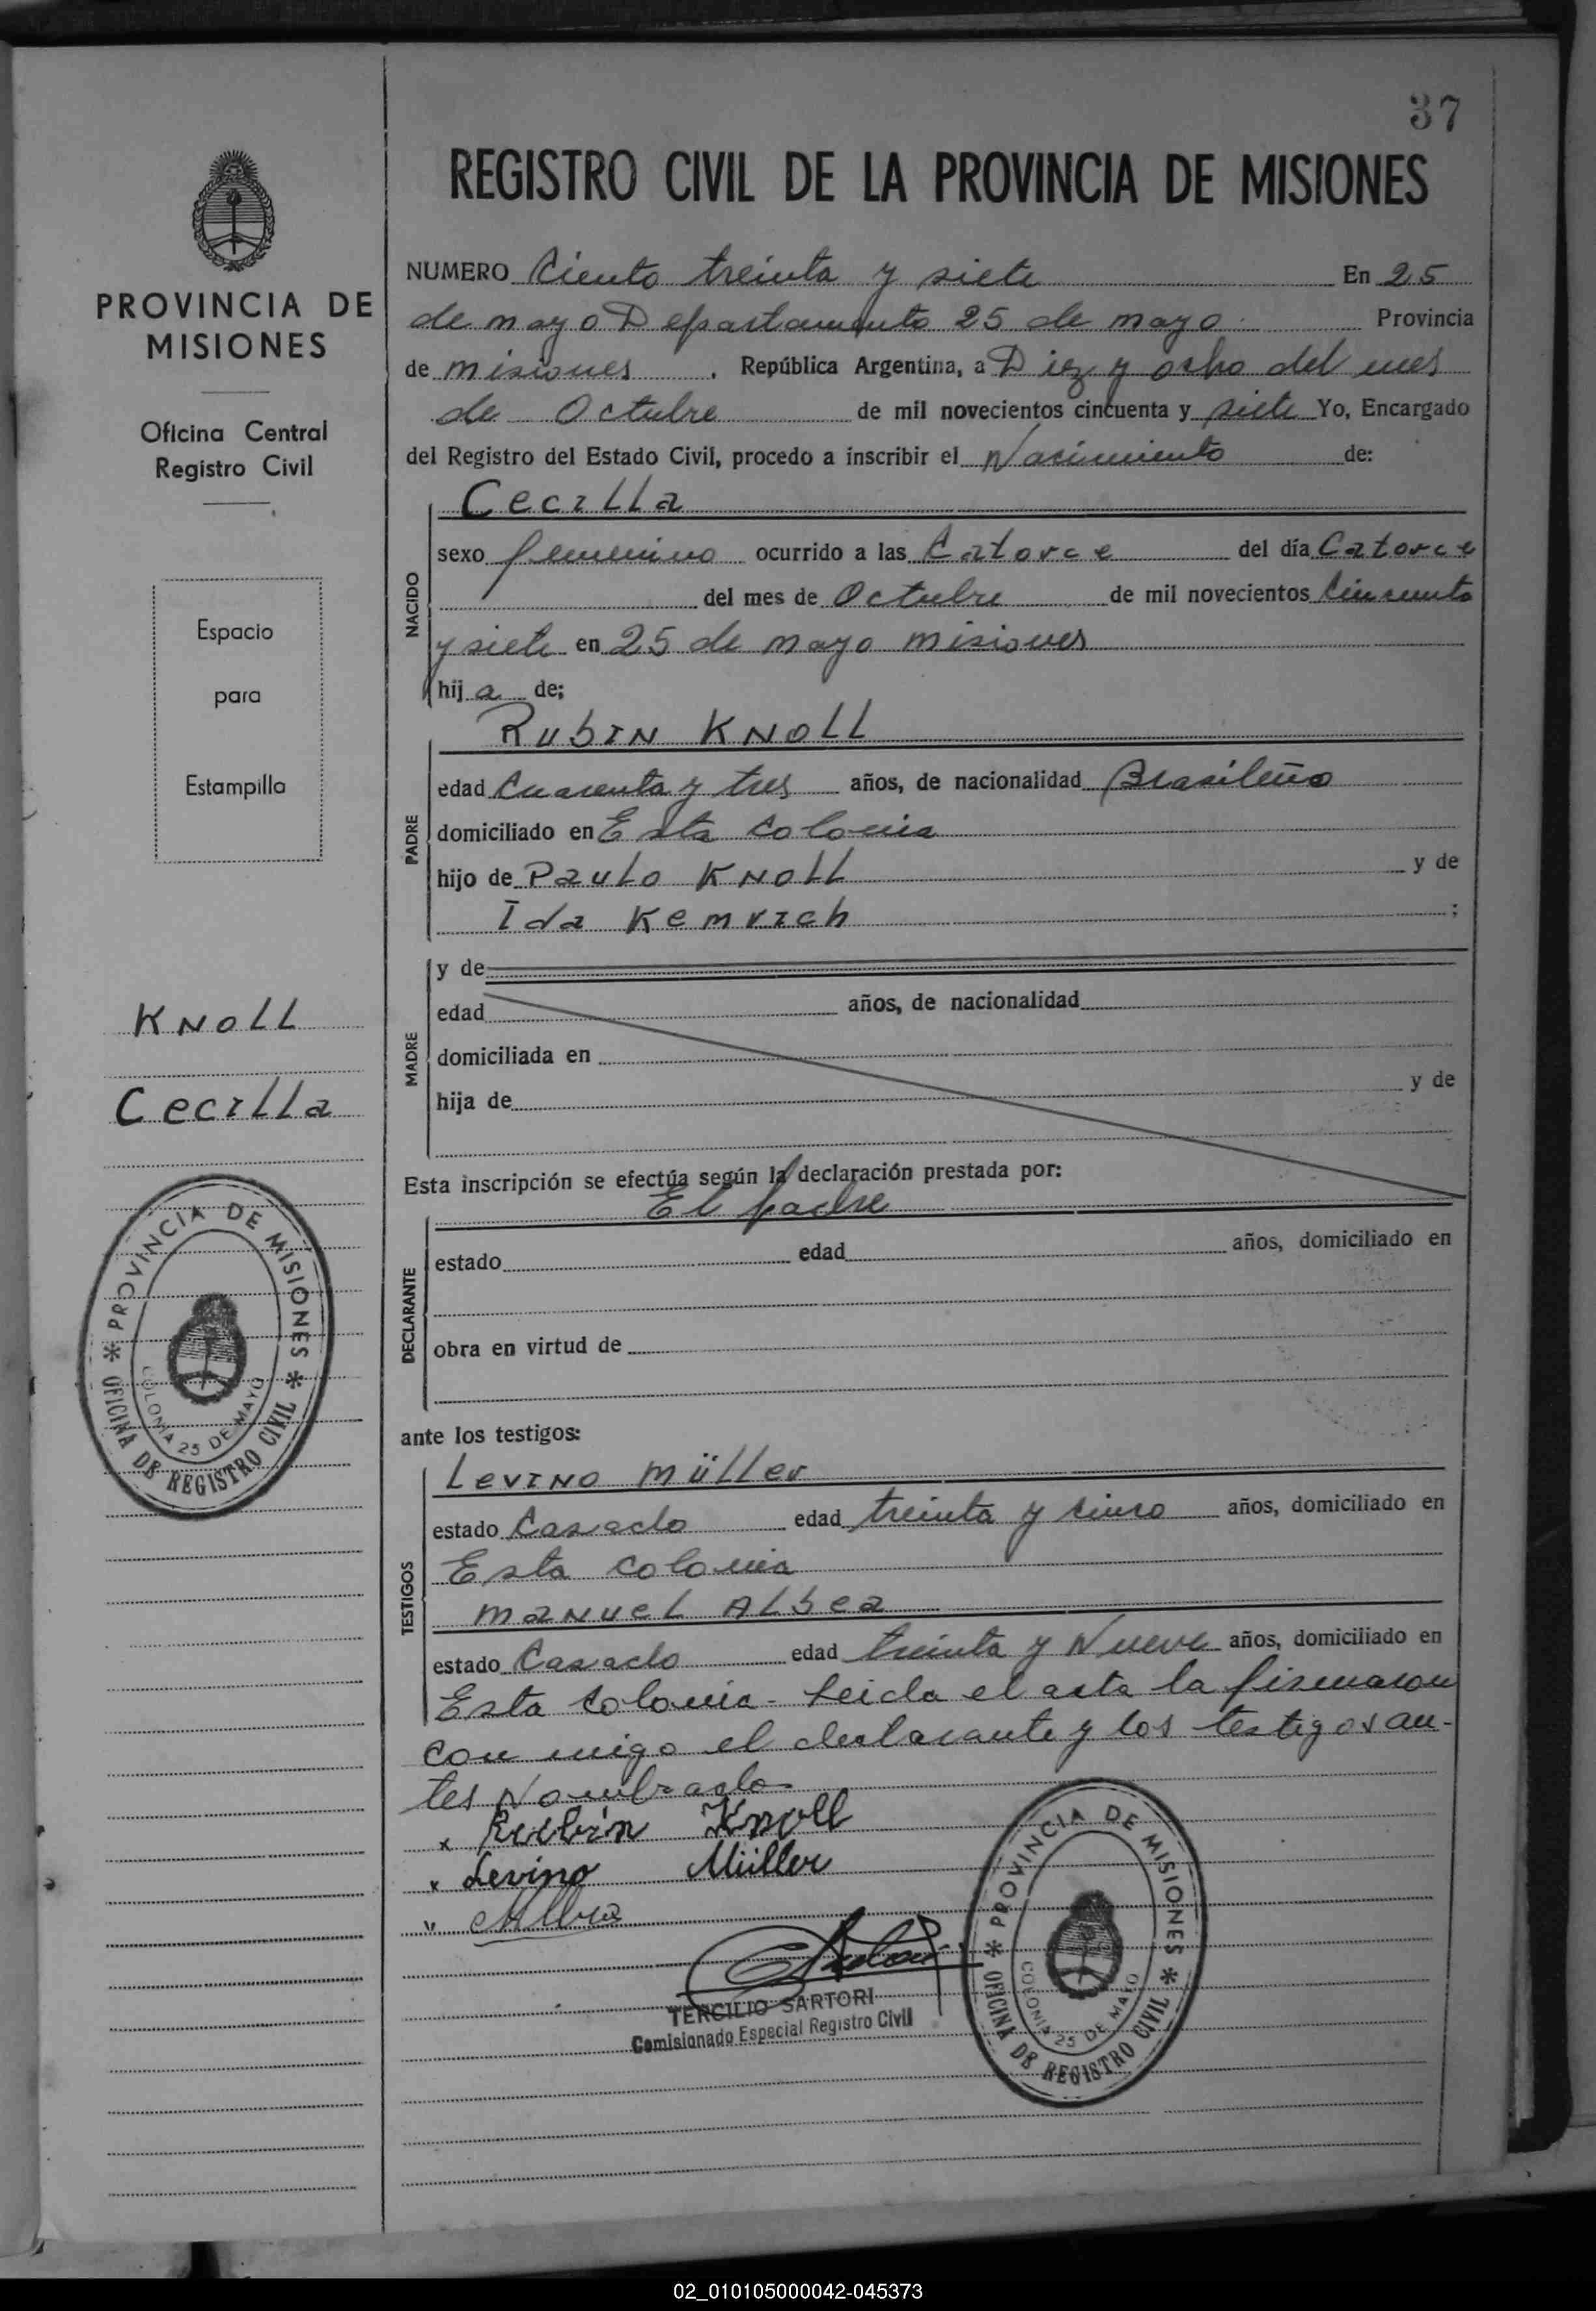 37
REGISTRO CIVIL DE LA PROVINCIA DE MISIONES
PROVINCIA DE
MISIONES
Oficina Central
Registro Civil
Espacio
para
Estampilla
KNOLL
Cecilla
PROVINCIA DE MISIONES
COLONIA 25 DE MAYO
OFICINA DE REGISTRO CIVIL
NUMERO Ciento treinta y siete En 25
de mayo Departamento 25 de mayo Provincia
de misiones . República Argentina, a Diez y ocho del mes
de Octubre de mil novecientos cincuenta y siete Yo, Encargado
del Registro del Estado Civil, procedo a inscribir el Nacimiento de:
NACIDO
Cecilla
sexo femenino ocurrido a las Catorce del día Catorce
del mes de Octubre de mil novecientos Cincuenta
y siete en 25 de mayo misiones
hij a de;
PADRE
RubIN KNOLL
edad Cuarenta y tres años, de nacionalidad Brasileño
domiciliado en Esta Colonia
hijo de Paulo KNOLL y de
Ida Kemrich ;
MADRE
y de
edad años, de nacionalidad
domiciliada en
hija de y de
Esta inscripción se efectúa según la declaración prestada por:
El padre
DECLARANTE
estado edad años, domiciliado en
obra en virtud de
ante los testigos:
TESTIGOS
LevINo müller
estado Casado edad treinta y cinco años, domiciliado en
Esta colonia
maNuel Albea
estado Casado edad treinta y Nueve años, domiciliado en
Esta Colonia - Leida el acta la firmaron
con migo el declarante y los testigos an-
tes Nombrados
x Rubin Knoll
x Levino Müller
" MAlbea
TERCILIO SARTORI
Comisionado Especial Registro Civil
PROVINCIA DE MISIONES
COLONIA 25 DE MAYO
OFICINA DE REGISTRO CIVIL
02_010105000042-045373